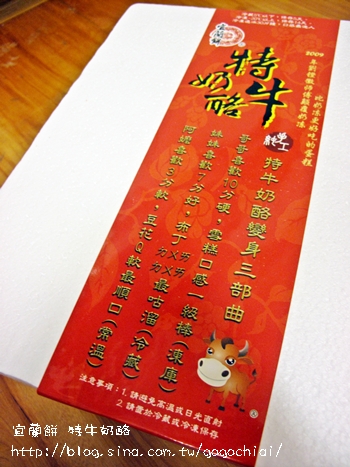 宜蘭餅
特牛
奶酪
2009
年劉鏗徽師傅顛覆奶凍
比奶凍更好吃的蛋糕
特牛奶酪變身三部曲
哥哥喜歡10分硬，雪糕口感一級棒（凍庫）
妹妹喜歡7分好，布丁ㄉㄨㄞㄉㄨㄞ最咕溜（冷藏）
阿嬤喜歡3分軟，豆花Q軟最順口（常溫）
注意事項：1.請避免高溫或日光直射
2.請置於冷藏或冷凍保存
宜蘭餅 特牛奶酪
http://blog.sina.com.tw/gagachiai/